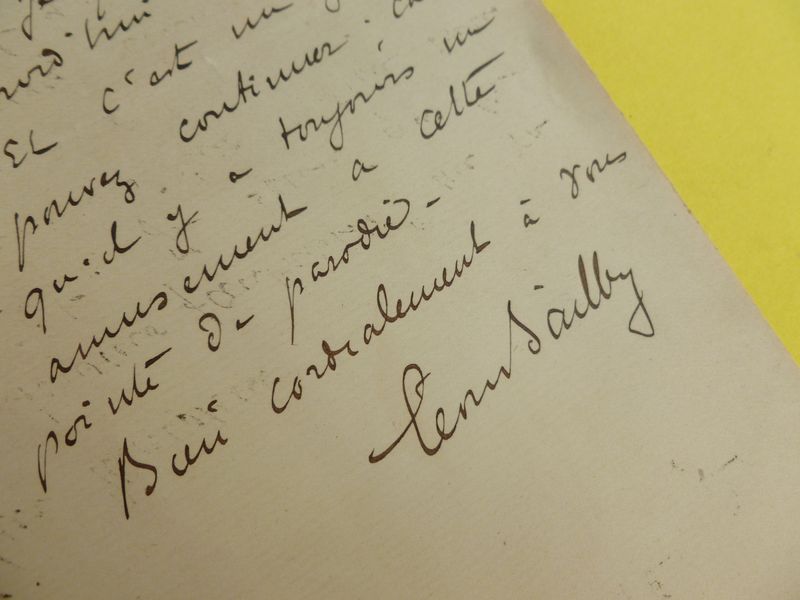 je
ourd'hui
Et c'est un
pouvez continuer, ca
qu'il y a toujours un
amusement a cette
pointe de parodie -
Bien cordialement à vous
Léon Bailby